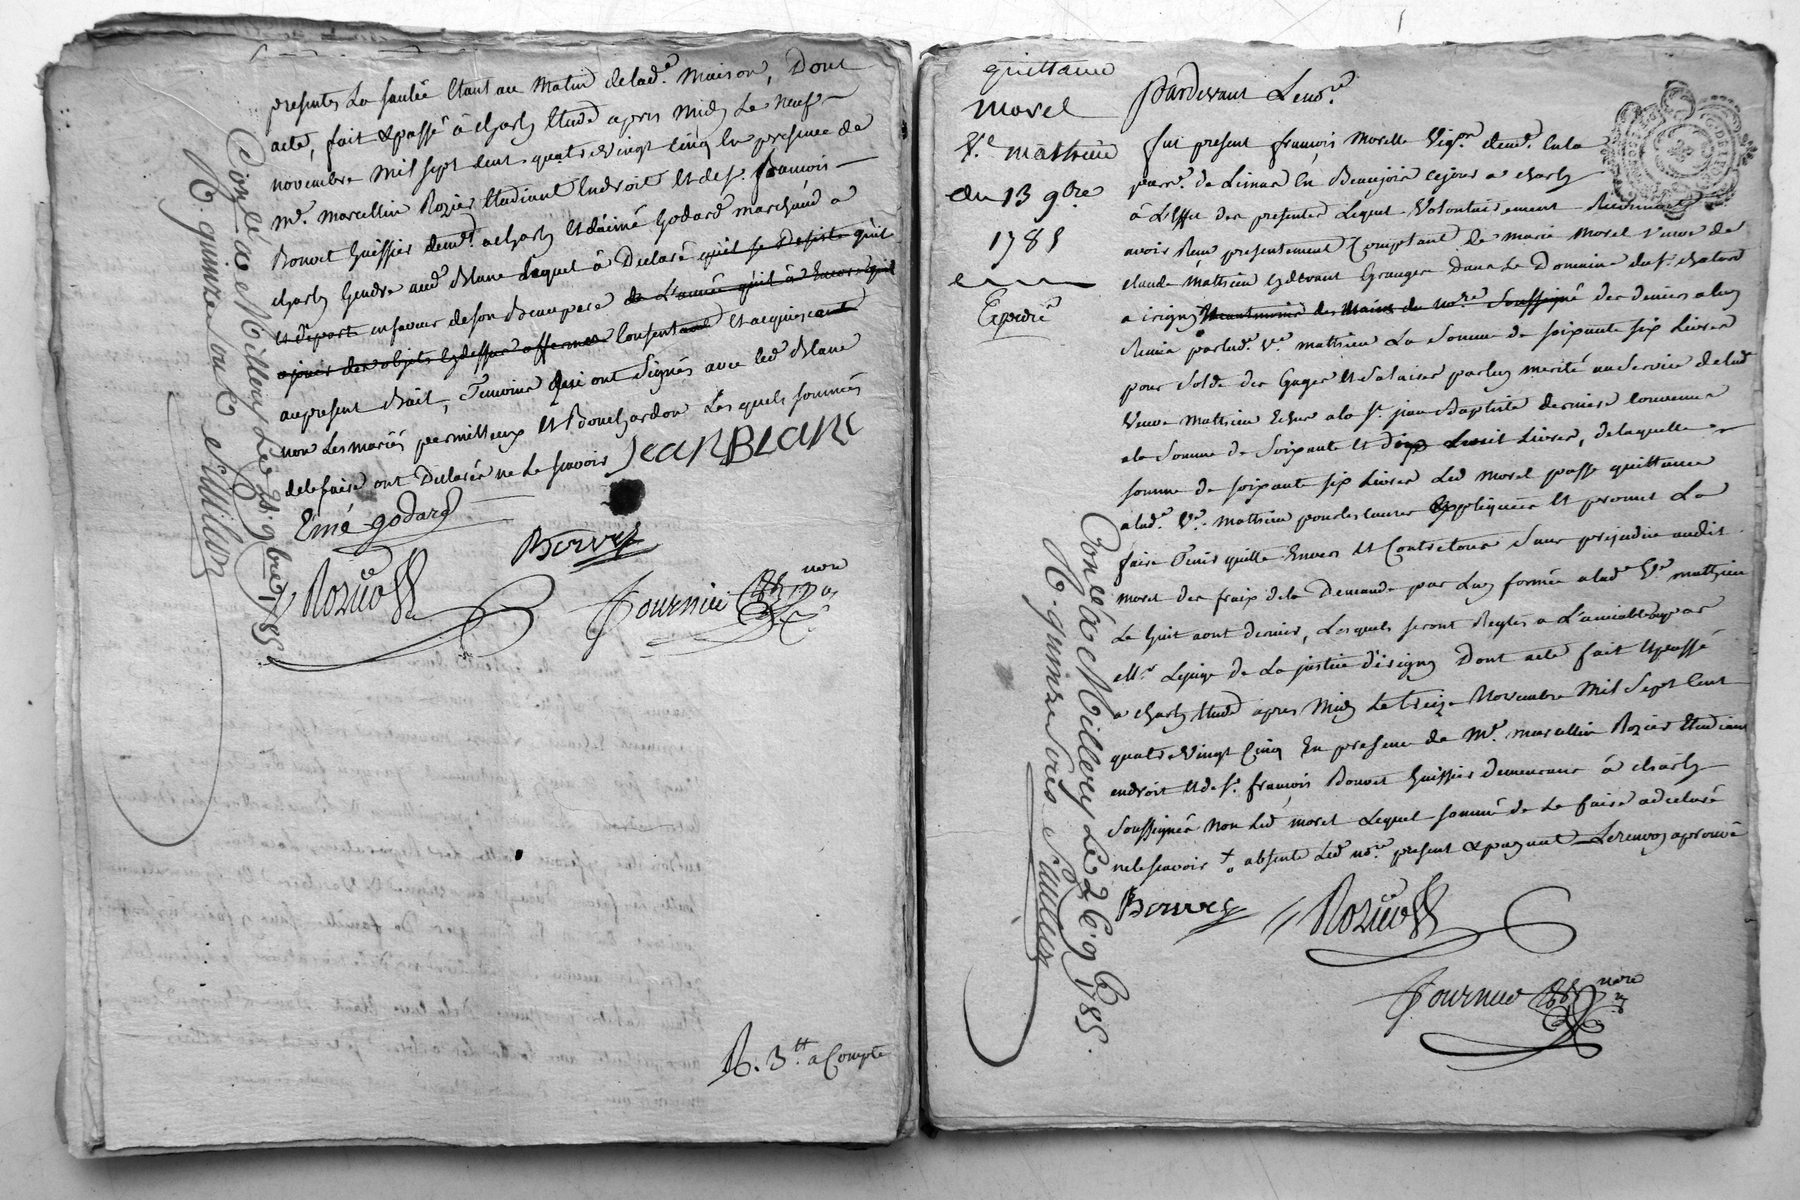 presentes La faulée Etant au Matin delad.e Maison, Dont
acte, fait & passé à charly Etude apres midy Le neuf
novembre mil sept cent quatre vingt cinq En presence de
m.e marcellin Rozier Etudiant Endroit et de s.r françois
Bouvet huissier dem.t a charly Et d'aimé Godard marchand a
charly Gendre aud.t Blanc Lequel à Declaré qu'il se Desiste qu'il
Et depart en faveur de son Beaupere de L'année qu'il à Encore qu'il
a jouir des objets cydessus affermés Consentant Et acquiescant
aupresent Bail, Temoins Qui ont Signés avec led. Blanc
non Les mariés permilleux Et Bouchardon Les quels sommés
de le faire ont Declarés ne Le scavoir
JeAN BLANC
Eimé godard
Bouvet
Rozier
Fournier nore
Con.lé à Millery Le 21 9bre 1785
R. quinze sols
R. 3.tt a Compte
quittance
morel
V.e mathieu
du 13 9bre
1785
Expedié
Pardevant Le no.re
fut present françois Morelle Vig.on dem.t En la
parr.e de Limas En Beaujois cejour a charly
à L'effet des presentes Lequel Volontairement
avoir Reçu presentement Comptant de marie Morel Veuve de
claude Mathieu cydevant Granger Dans Le Domaine du s.r
a irigny des mains du no.re Soussigné des deniers a luy
Remis par lad.e V.e mathieu La Somme de soixante six Livres
pour Solde des Gages Et Salaires par luy merité au Service de lad.e
Veuve Mathieu Echus a la S.t jean Baptiste derniere Convenue
a la Somme de Soixante Et dix huit Livres, de laquelle
somme de soixante six Livres Led. morel passe quittance
a lad.e V.e mathieu pour les causes Expliquées Et promet La
faire Tenir quitte Envers Et Contre tous Sans prejudice audit
morel des fraix de la Demande par Luy formée a lad.e V.e mathieu
Le huit aout dernier, Lesquels seront Reglés a L'amiable par
M.r Le juge de La justice d'irigny Dont acte fait & passé
a charly Etude apres Midy Le treize Novembre Mil Sept Cent
quatre Vingt Cinq En presence de M.e marcellin Rozier Etudiant
endroit Et de s.r françois Bouvet huissier demeurant à charly
Soussignés non Led. morel Lequel sommé de Le faire a declaré
ne le scavoir + absente Led. no.re present & payant Le renvoy aprouvé
Bouvet
Rozier
Fournier nore
Con.lé à Millery Le 26 9bre 1785.
R. quinze sols